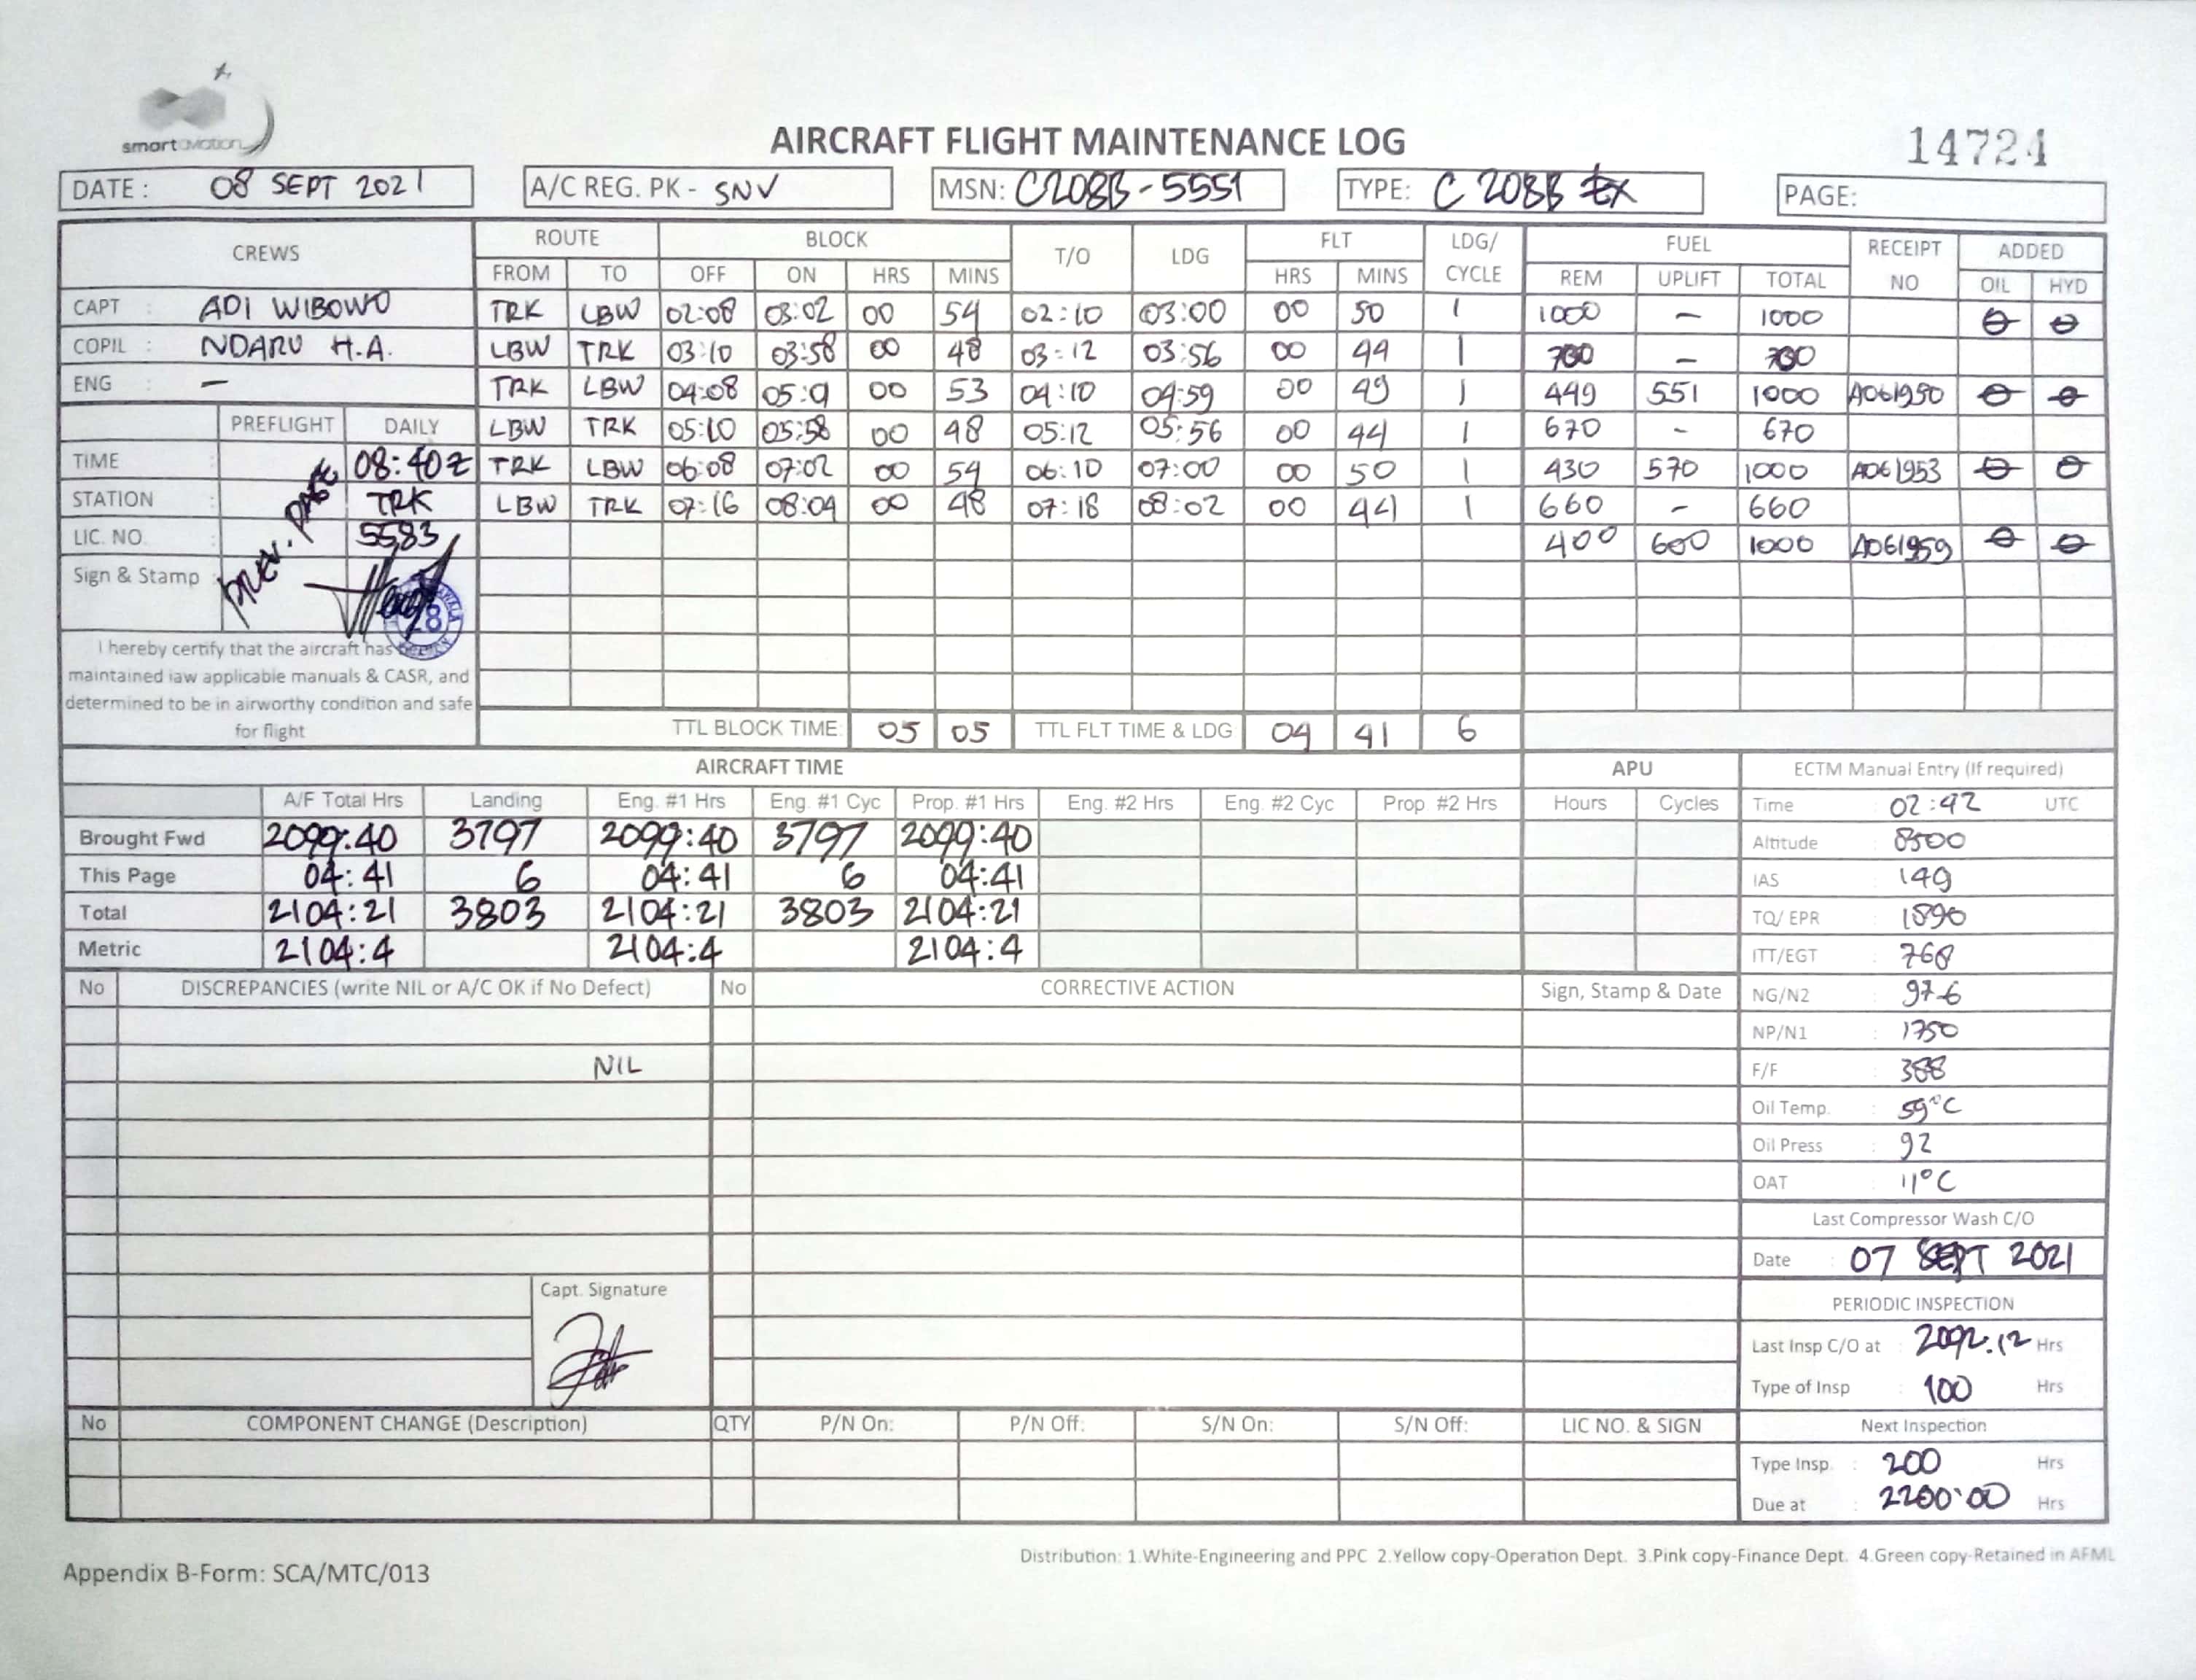 smart aviation
AIRCRAFT FLIGHT MAINTENANCE LOG
14724
DATE : 08 SEPT 2021 A/C REG. PK - SNV MSN: C208B-5551 TYPE: C 208B EX PAGE:
CREWS ROUTE BLOCK T/O LDG FLT LDG/ CYCLE FUEL RECEIPT NO ADDED
FROM TO OFF ON HRS MINS HRS MINS REM UPLIFT TOTAL OIL HYD
CAPT : ADI WIBOWO TRK LBW 02:08 03:02 00 54 02:10 03:00 00 50 1 1000 - 1000 0 0
COPIL : NDARU H.A. LBW TRK 03:10 03:58 00 48 03:12 03:56 00 44 1 700 - 700
ENG : - TRK LBW 04:08 05:01 00 53 04:10 04:59 00 49 1 449 551 1000 A061950 0 0
PREFLIGHT DAILY LBW TRK 05:10 05:58 00 48 05:12 05:56 00 44 1 670 - 670
TIME : 08:40Z TRK LBW 06:08 07:02 00 54 06:10 07:00 00 50 1 430 570 1000 A061953 0 0
STATION : TRK LBW TRK 07:16 08:04 00 48 07:18 08:02 00 44 1 660 - 660
LIC. NO. : 5583 400 600 1000 A061959 0 0
Sign & Stamp : PREV. PAGE
28
I hereby certify that the aircraft has been
maintained iaw applicable manuals & CASR, and
determined to be in airworthy condition and safe
for flight
TTL BLOCK TIME: 05 05 TTL FLT TIME & LDG 04 41 6
AIRCRAFT TIME APU ECTM Manual Entry (If required)
A/F Total Hrs Landing Eng. #1 Hrs Eng. #1 Cyc Prop. #1 Hrs Eng. #2 Hrs Eng. #2 Cyc Prop. #2 Hrs Hours Cycles Time : 02:42 UTC
Brought Fwd 2099:40 3797 2099:40 3797 2099:40 Altitude : 8500
This Page 04:41 6 04:41 6 04:41 IAS : 149
Total 2104:21 3803 2104:21 3803 2104:21 TQ/ EPR : 1890
Metric 2104:4 2104:4 2104:4 ITT/EGT : 768
No DISCREPANCIES (write NIL or A/C OK if No Defect) No CORRECTIVE ACTION Sign, Stamp & Date NG/N2 : 97.6
NP/N1 : 1750
NIL F/F : 388
Oil Temp. : 59°C
Oil Press : 92
OAT : 11°C
Last Compressor Wash C/O
Date : 07 SEPT 2021
Capt. Signature
PERIODIC INSPECTION
Last Insp C/O at : 2092:12 Hrs
Type of Insp : 100 Hrs
No COMPONENT CHANGE (Description) QTY P/N On: P/N Off: S/N On: S/N Off: LIC NO. & SIGN Next Inspection
Type Insp. : 200 Hrs
Due at : 2200:00 Hrs
Appendix B-Form: SCA/MTC/013
Distribution: 1.White-Engineering and PPC 2.Yellow copy-Operation Dept. 3.Pink copy-Finance Dept. 4.Green copy-Retained in AFML